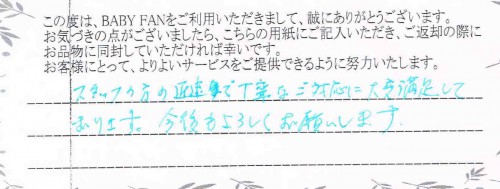 この度は、BABY FANをご利用いただきまして、誠にありがとうございます。
お気づきの点がございましたら、こちらの用紙にご記入いただき、ご返却の際に
お品物に同封していただければ幸いです。
お客様にとって、よりよいサービスをご提供できるように努力いたします。
スタッフの方の迅速で丁寧なご対応に大変満足して
おります。今後もよろしくお願いします。